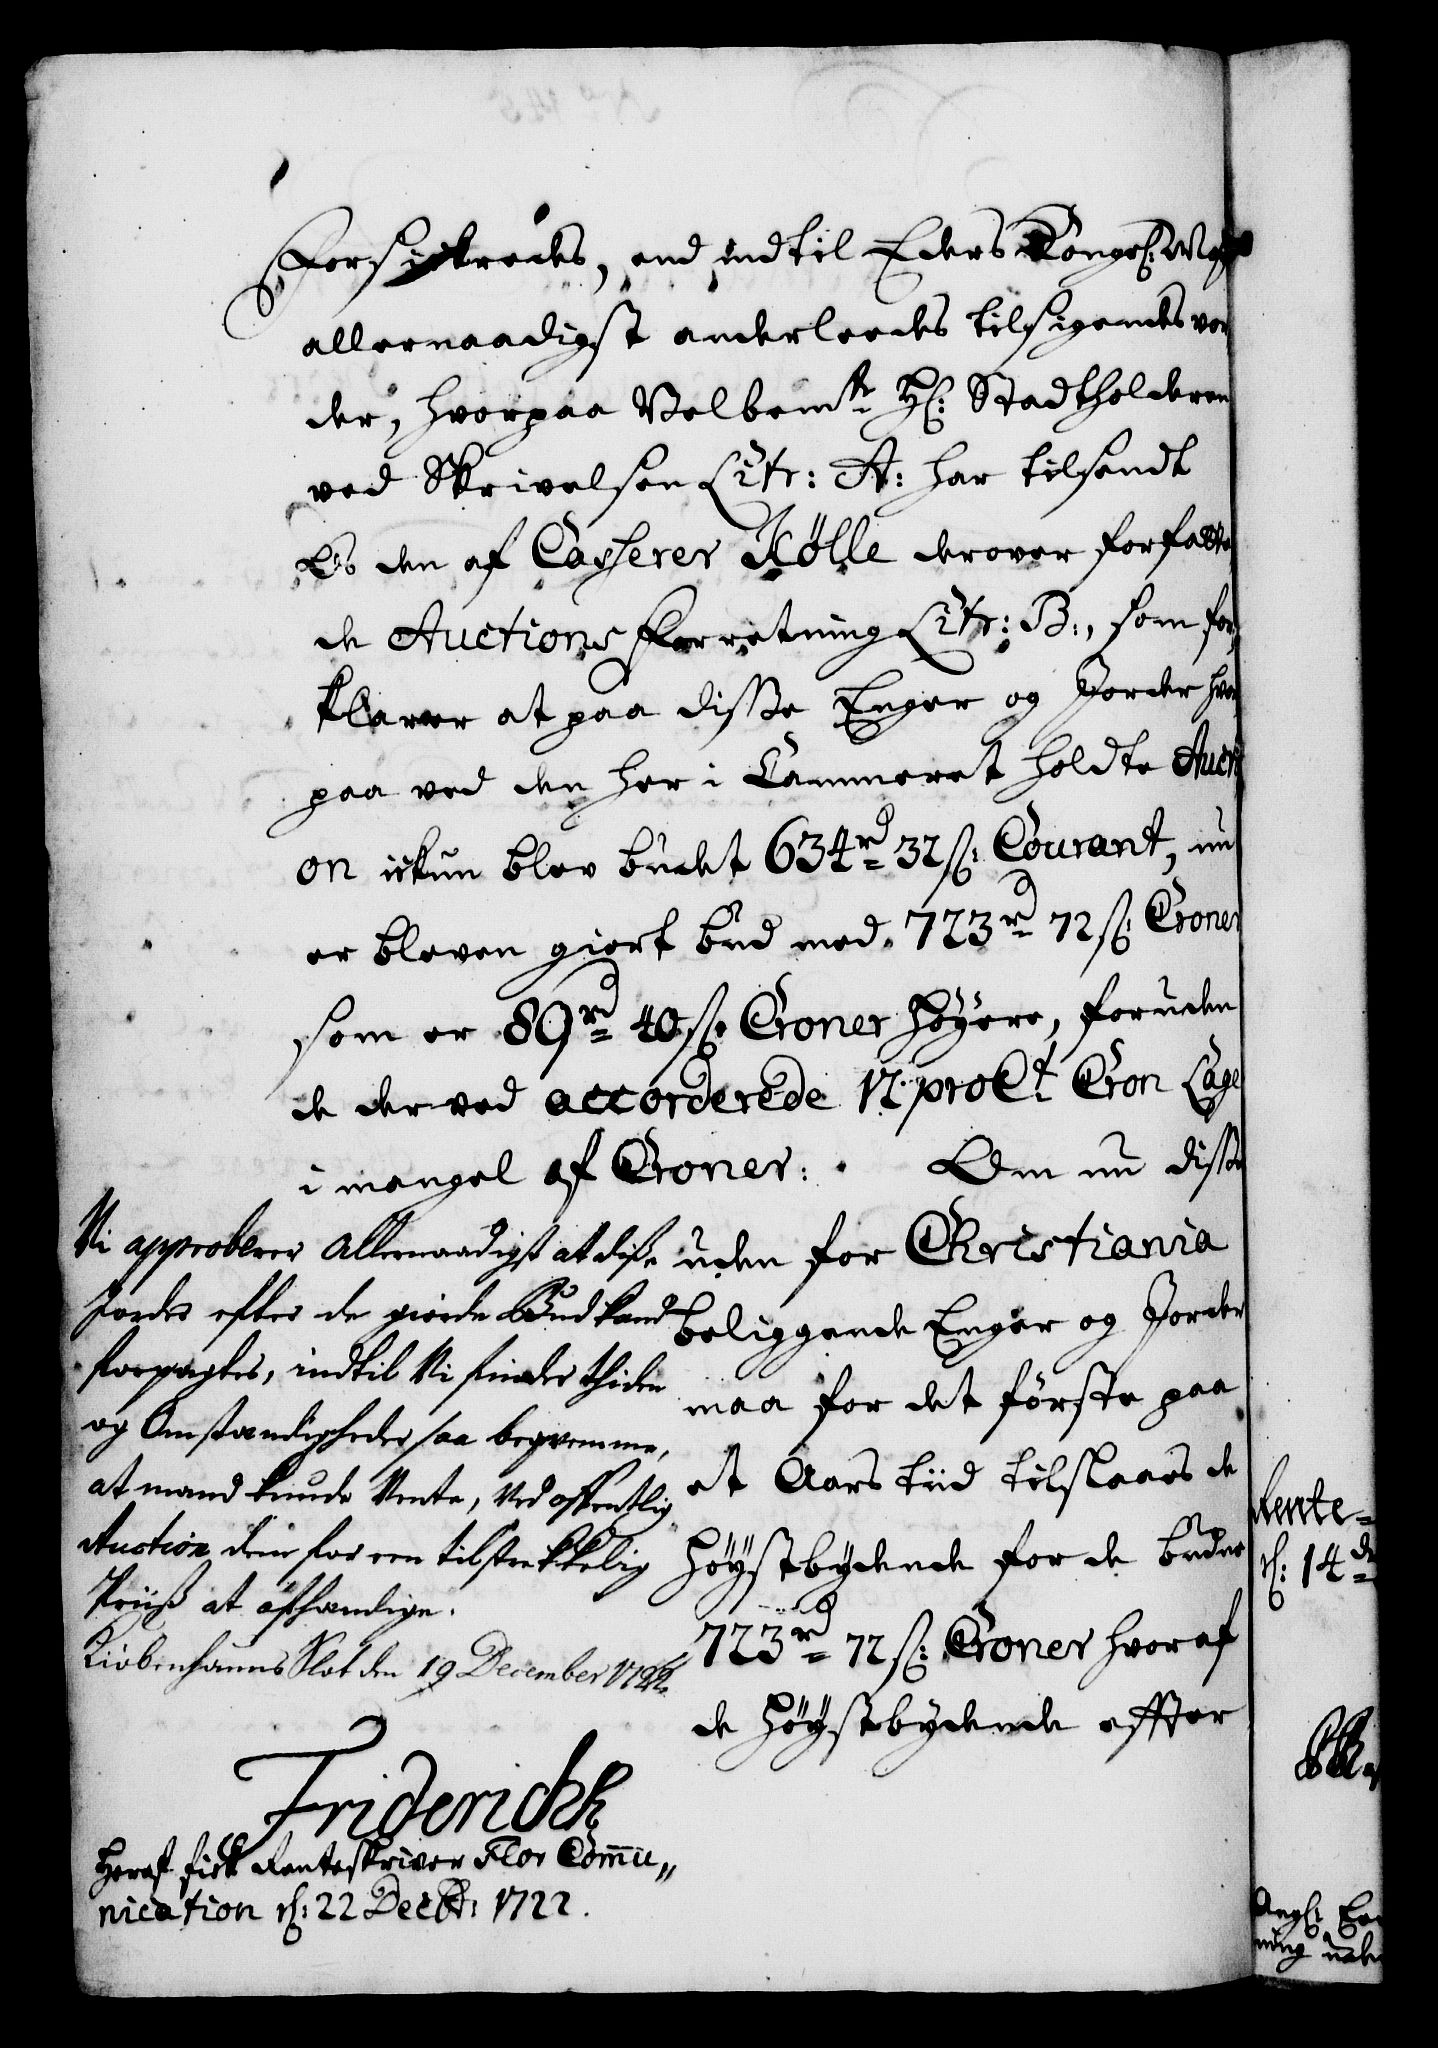 Forsickredes, end indtil Eders Kongel: May
allernaadigst anderleedes tilsigendes vor
der, hvorpaa Velbemte Hr: Stadtholderen
ved Skrivelsen Litr: A: har tilsendt
Os den af Casserer Kølle derover forfatte
de Auctions Forretning Litr: B:, som for
klarer at paa disse Enger og Jorder hvor
paa ved den her i Cammeret holdte Aucti
on ickun blev budet 634rd 32 s: Courant, nu
er bleven giort bud med 723rd 72 s: Croner
som er 89rd 40 s: Croner høyere, foruden
de derved accorderede 12 proCt Cron Lage
i mangel af Croner: Om nu disse
uden for Christiania
beliggende Enger og Jorder
maa for det første paa
et Aars tiid tilslaaes de
høystbydende for de budne
723rd 72 s: Croner hvoraf
de høystbydende effter
Vi approberer Allernaadigst at disse
Jorder efter de giorde Bud kand
forpagtes, indtil Vi finder thiden
og Omstændigheder saa beqvemme,
at mand kunde Vente, ved offentlig
Auction dem for een tilstrekkelig
Priis at afhændige.
Kiøbenhavns Slot den 19 December 1722.
Friderich
Heraf fick Renteskriver Flor Commu„
nication d: 22 Decbr: 1722.
Rente-
d: 14de